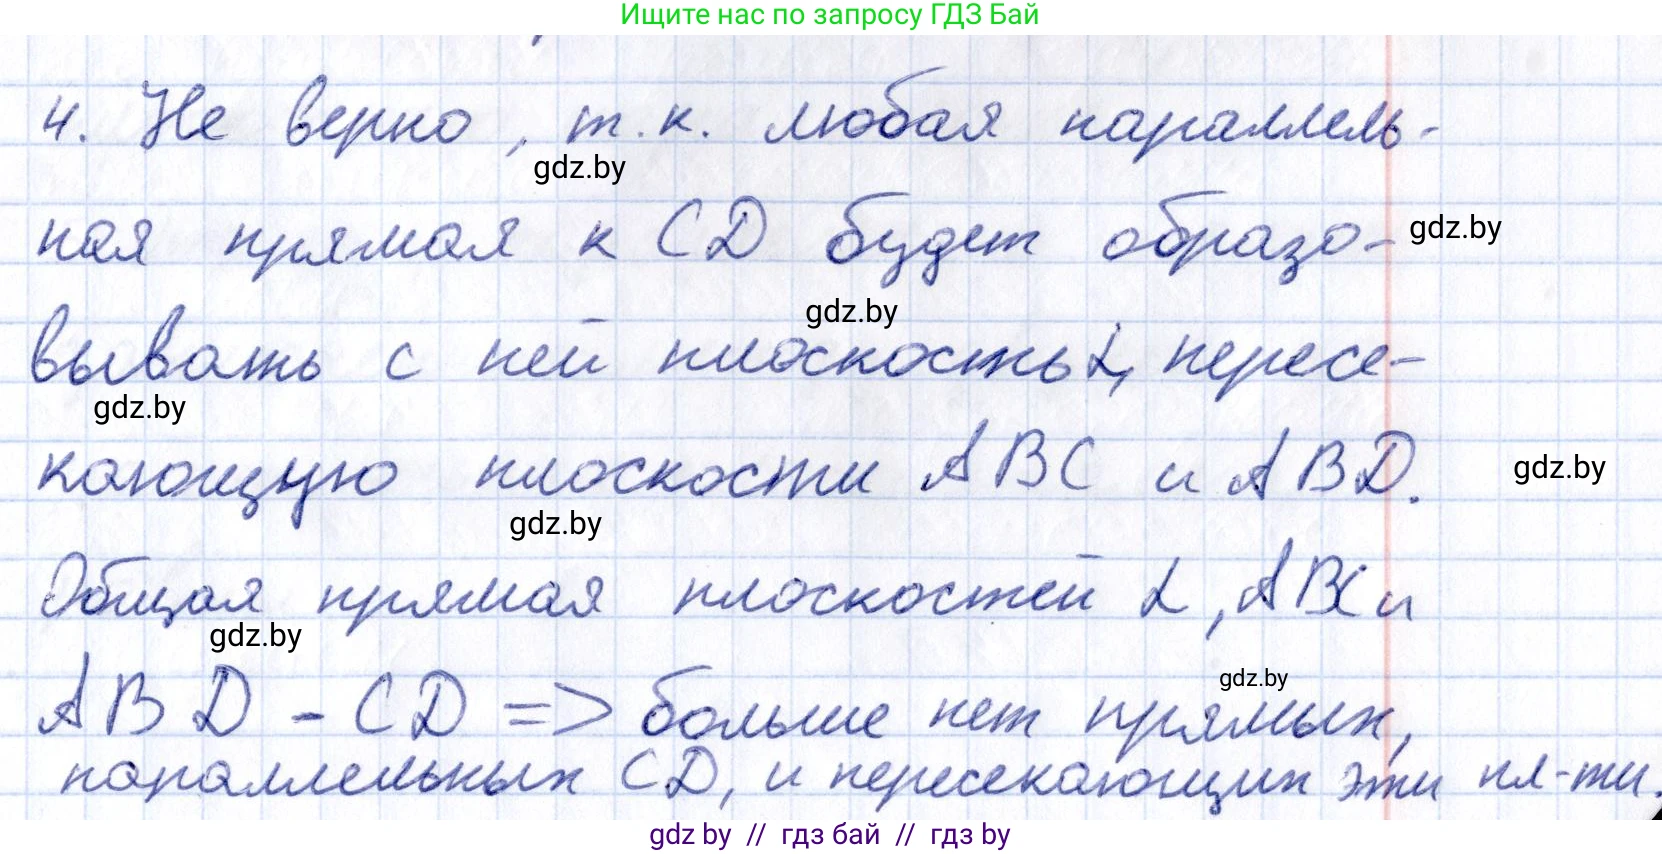 Ищите нас по запросу ГДЗ Бай
4. Не верно, т.к. любая параллель-
gdz.by
ная прямая к CD будет образо-
gdz.by
gdz.by
вывать с ней плоскость α, пересе-
gdz.by
кающую плоскости ABC и ABD.
gdz.by
gdz.by
Общая прямая плоскостей α, ABC и
gdz.by
gdz.by
ABD - CD => больше нет прямых,
параллельных CD, и пересекающих эти пл-ти.
gdz.by // гдз бай // гдз by